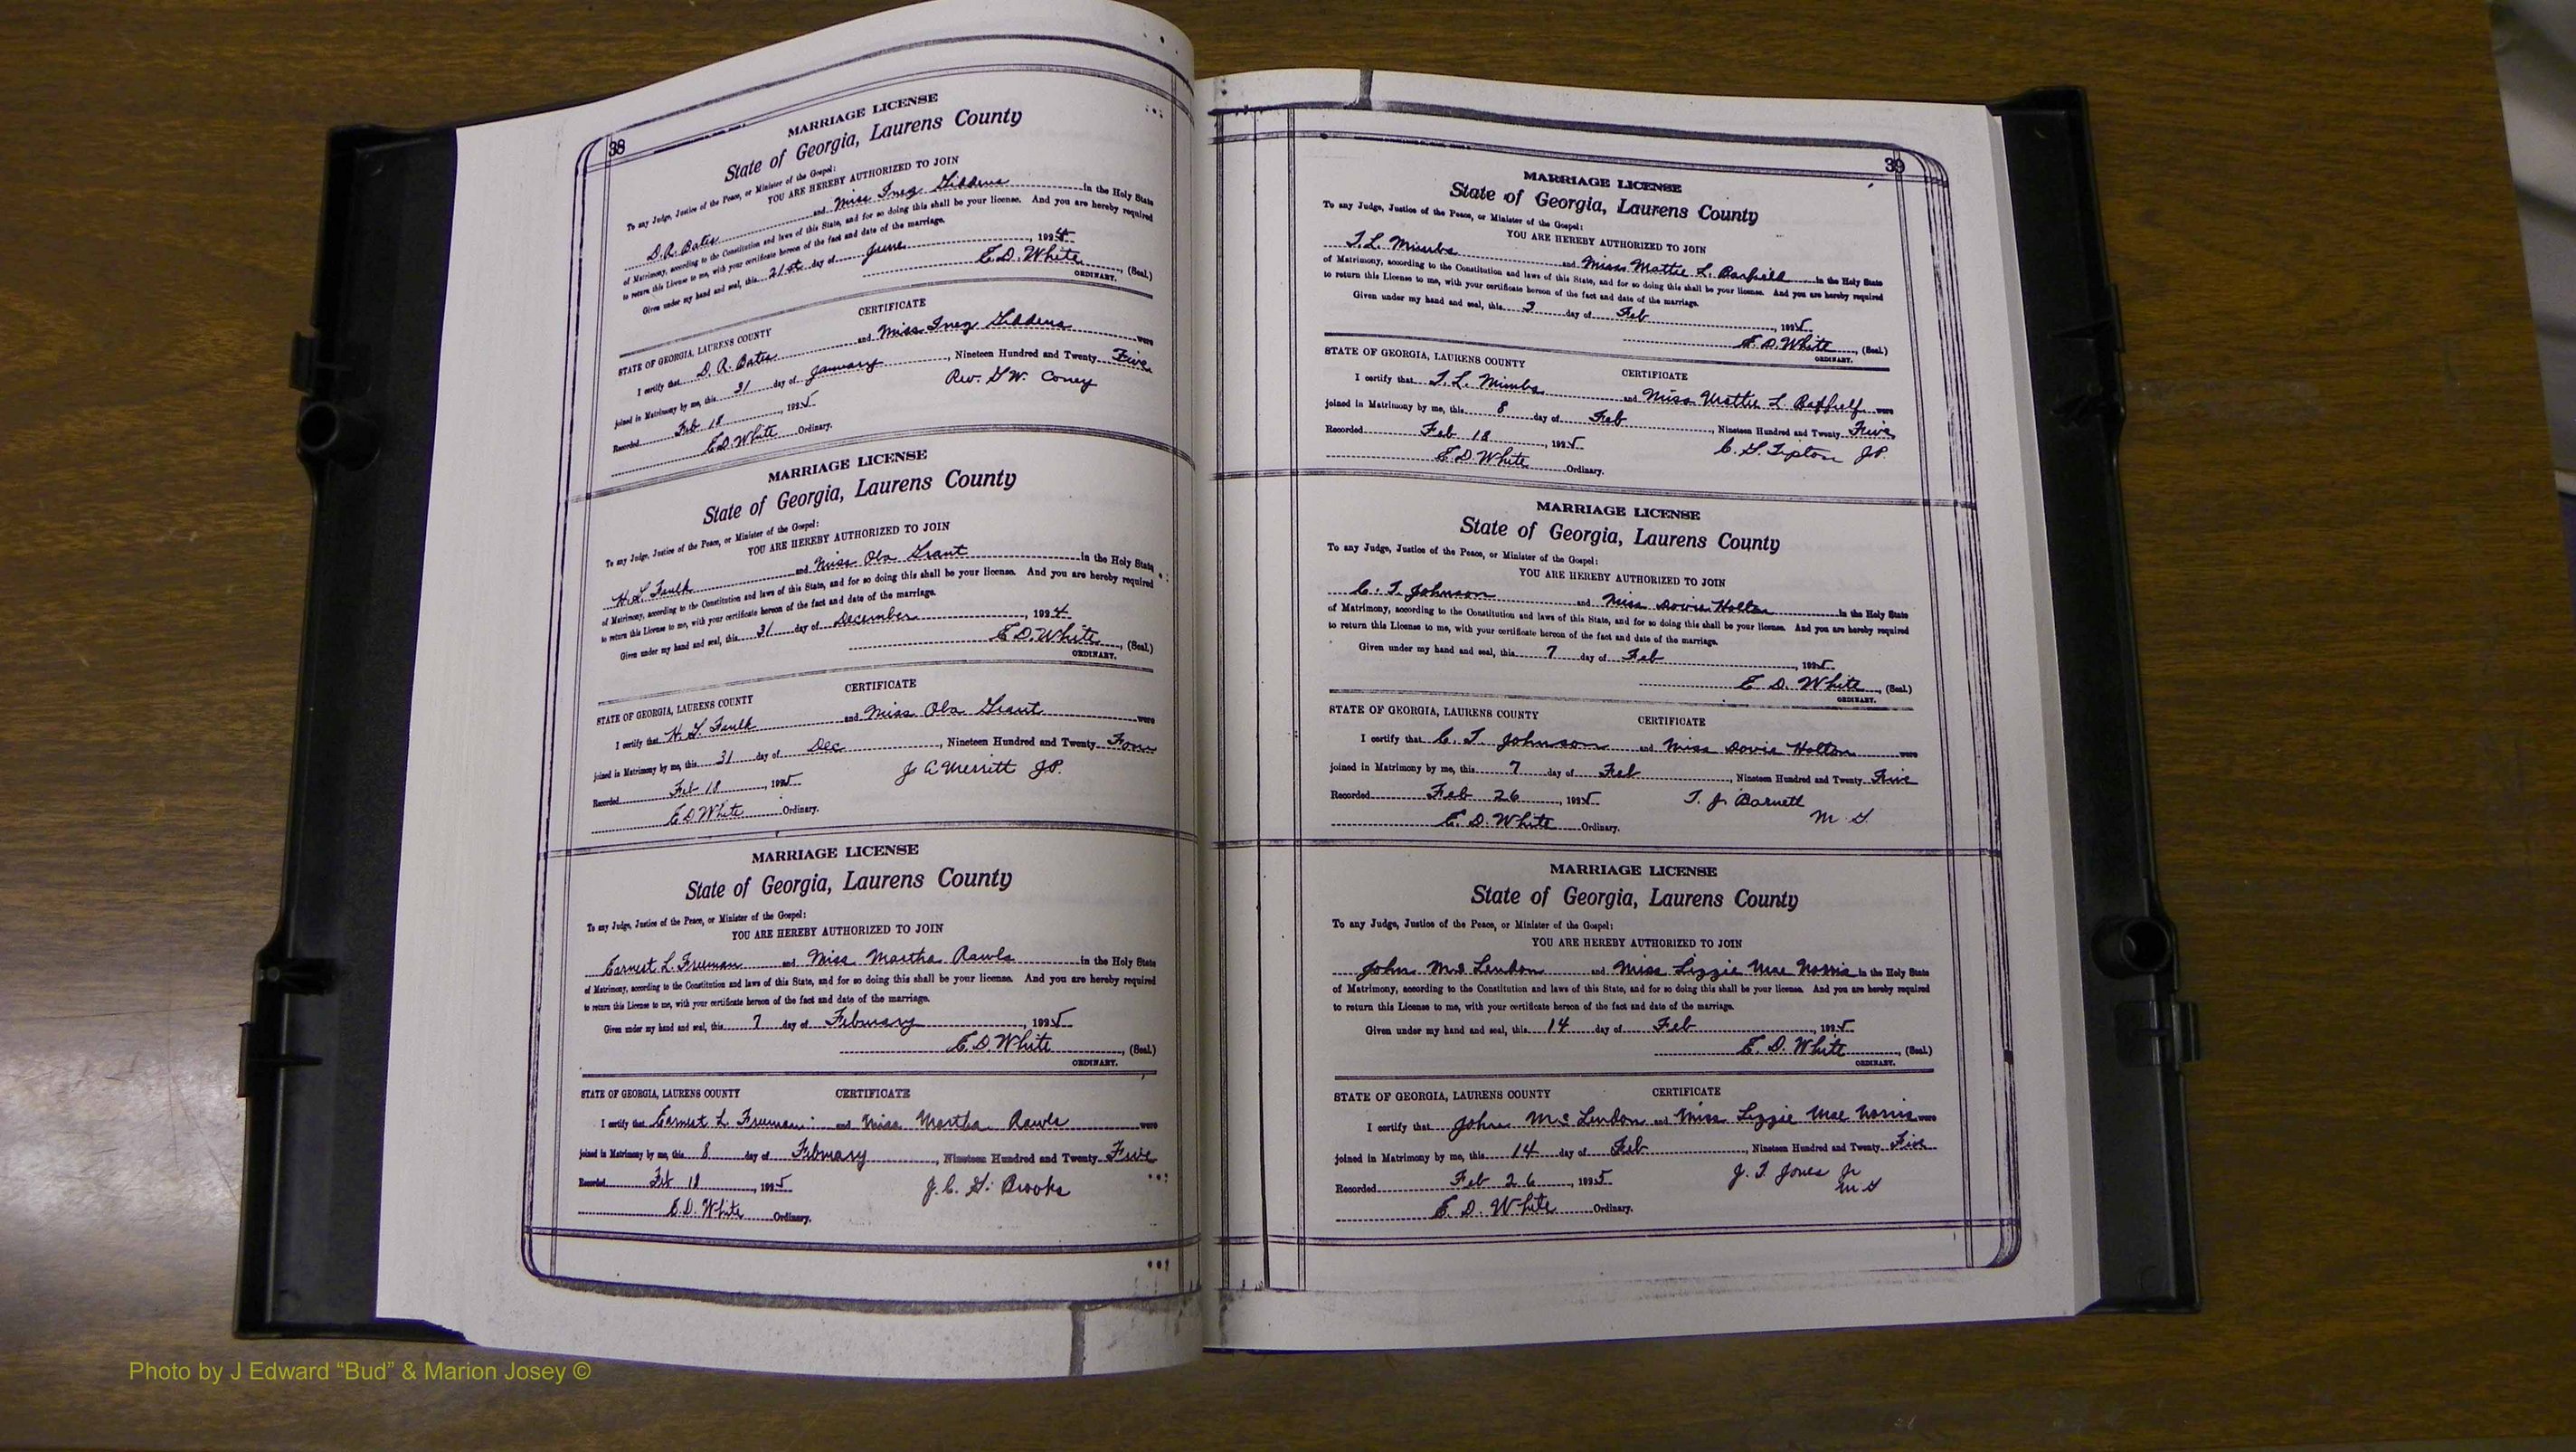 38
MARRIAGE LICENSE
State of Georgia, Laurens County
To any Judge, Justice of the Peace, or Minister of the Gospel:
YOU ARE HEREBY AUTHORIZED TO JOIN
D. R. Bates and Miss Inez Giddens in the Holy State
of Matrimony, according to the Constitution and laws of this State, and for so doing this shall be your license. And you are hereby required
to return this License to me, with your certificate hereon of the fact and date of the marriage.
Given under my hand and seal, this 21st day of June, 1924
E. D. White, (Seal.)
ORDINARY.
CERTIFICATE
STATE OF GEORGIA, LAURENS COUNTY
I certify that D. R. Bates and Miss Inez Giddens were
joined in Matrimony by me, this 31 day of January, Nineteen Hundred and Twenty Five
Recorded Feb 18, 1925 Rev. G. W. Coney
E. D. White Ordinary.
MARRIAGE LICENSE
State of Georgia, Laurens County
To any Judge, Justice of the Peace, or Minister of the Gospel:
YOU ARE HEREBY AUTHORIZED TO JOIN
H. L. Faulk and Miss Ola Grant in the Holy State
of Matrimony, according to the Constitution and laws of this State, and for so doing this shall be your license. And you are hereby required
to return this License to me, with your certificate hereon of the fact and date of the marriage.
Given under my hand and seal, this 31 day of December, 1924
E. D. White, (Seal.)
ORDINARY.
CERTIFICATE
STATE OF GEORGIA, LAURENS COUNTY
I certify that H. L. Faulk and Miss Ola Grant were
joined in Matrimony by me, this 31 day of Dec, Nineteen Hundred and Twenty Four
Recorded Feb 18, 1925 J A Merritt J.P.
E D White Ordinary.
MARRIAGE LICENSE
State of Georgia, Laurens County
To any Judge, Justice of the Peace, or Minister of the Gospel:
YOU ARE HEREBY AUTHORIZED TO JOIN
Earnest L. Freeman and Miss Martha Rawls in the Holy State
of Matrimony, according to the Constitution and laws of this State, and for so doing this shall be your license. And you are hereby required
to return this License to me, with your certificate hereon of the fact and date of the marriage.
Given under my hand and seal, this 7 day of February, 1925
E. D. White, (Seal.)
ORDINARY.
STATE OF GEORGIA, LAURENS COUNTY CERTIFICATE
I certify that Earnest L. Freeman and Miss Martha Rawls were
joined in Matrimony by me, this 8 day of February, Nineteen Hundred and Twenty Five
Recorded Feb 18, 1925 J. C. G. Brooks
E. D. White Ordinary.
39
MARRIAGE LICENSE
State of Georgia, Laurens County
To any Judge, Justice of the Peace, or Minister of the Gospel:
YOU ARE HEREBY AUTHORIZED TO JOIN
T. L. Mimbs and Miss Mattie L. Barfield in the Holy State
of Matrimony, according to the Constitution and laws of this State, and for so doing this shall be your license. And you are hereby required
to return this License to me, with your certificate hereon of the fact and date of the marriage.
Given under my hand and seal, this 3 day of Feb, 1925
E. D. White, (Seal.)
ORDINARY.
STATE OF GEORGIA, LAURENS COUNTY CERTIFICATE
I certify that T. L. Mimbs and Miss Mattie L. were
joined in Matrimony by me, this 8 day of Feb, Nineteen Hundred and Twenty Five
Recorded Feb 18, 1925 C. G. Tipton J.P.
E. D. White Ordinary.
MARRIAGE LICENSE
State of Georgia, Laurens County
To any Judge, Justice of the Peace, or Minister of the Gospel:
YOU ARE HEREBY AUTHORIZED TO JOIN
C. T. Johnson and Miss Dovie Holton in the Holy State
of Matrimony, according to the Constitution and laws of this State, and for so doing this shall be your license. And you are hereby required
to return this License to me, with your certificate hereon of the fact and date of the marriage.
Given under my hand and seal, this 7 day of Feb, 1925
E. D. White, (Seal.)
ORDINARY.
STATE OF GEORGIA, LAURENS COUNTY CERTIFICATE
I certify that C. T. Johnson and Miss Dovie Holton were
joined in Matrimony by me, this 7 day of Feb, Nineteen Hundred and Twenty Five
Recorded Feb 26, 1925 T. J. Barnett
M. G.
E. D. White Ordinary.
MARRIAGE LICENSE
State of Georgia, Laurens County
To any Judge, Justice of the Peace, or Minister of the Gospel:
YOU ARE HEREBY AUTHORIZED TO JOIN
John McLendon and Miss Lizzie Mae Norris in the Holy State
of Matrimony, according to the Constitution and laws of this State, and for so doing this shall be your license. And you are hereby required
to return this License to me, with your certificate hereon of the fact and date of the marriage.
Given under my hand and seal, this 14 day of Feb, 1925
E. D. White, (Seal.)
ORDINARY.
STATE OF GEORGIA, LAURENS COUNTY CERTIFICATE
I certify that John McLendon and Miss Lizzie Mae Norris were
joined in Matrimony by me, this 14 day of Feb, Nineteen Hundred and Twenty Five
Recorded Feb 26, 1925 J. T. Jones Jr
M G
E. D. White Ordinary.
Photo by J Edward “Bud” & Marion Josey ©